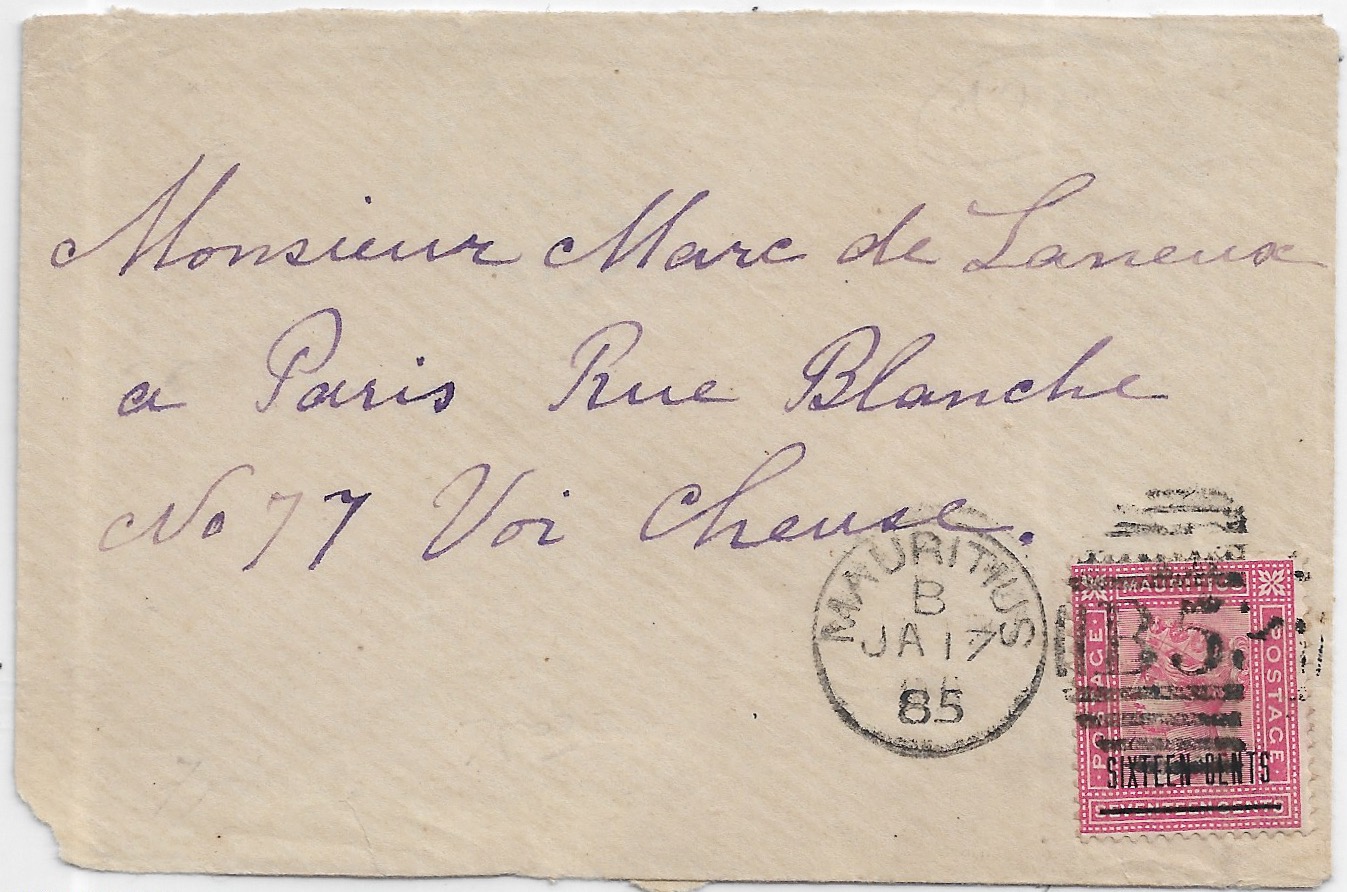 Monsieur Marc de Laneux
a Paris Rue Blanche
No 77 Voi Cheuse.
MAURITIUS
B
JA 17
85
B53
MAURITIUS
POSTAGE
POSTAGE
SIXTEEN CENTS
SEVENTEEN CENTS